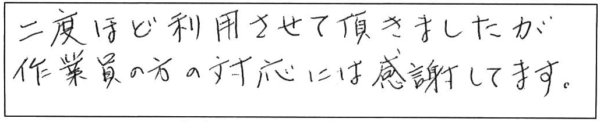 二度ほど利用させて頂きましたが
作業員の方の対応には感謝してます。